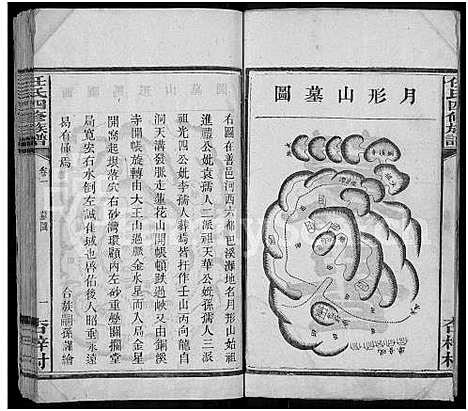 月形山墓圖
右圖在善邑河西六都巴溪灘地名月形山始祖
進禮公妣袁孺人二派祖天華公妣孫孺人三派
祖光四公妣李孺人葬焉皆扦作壬山丙向龍自
洞天溝發脈走蓮花山開帳頓跌過峽又由銅溪
寺開帳旋轉由大王山過脈金水星而入局金星
開窩起墩落穴右砂灣環顧內左砂重疊關攔堂
局寬安右水倒左誠佳城也啓佑後人昭垂永遠
曷有極焉
合族嗣孫謹繪
任氏四修族譜
卷一
墓圖
一
杏梓村